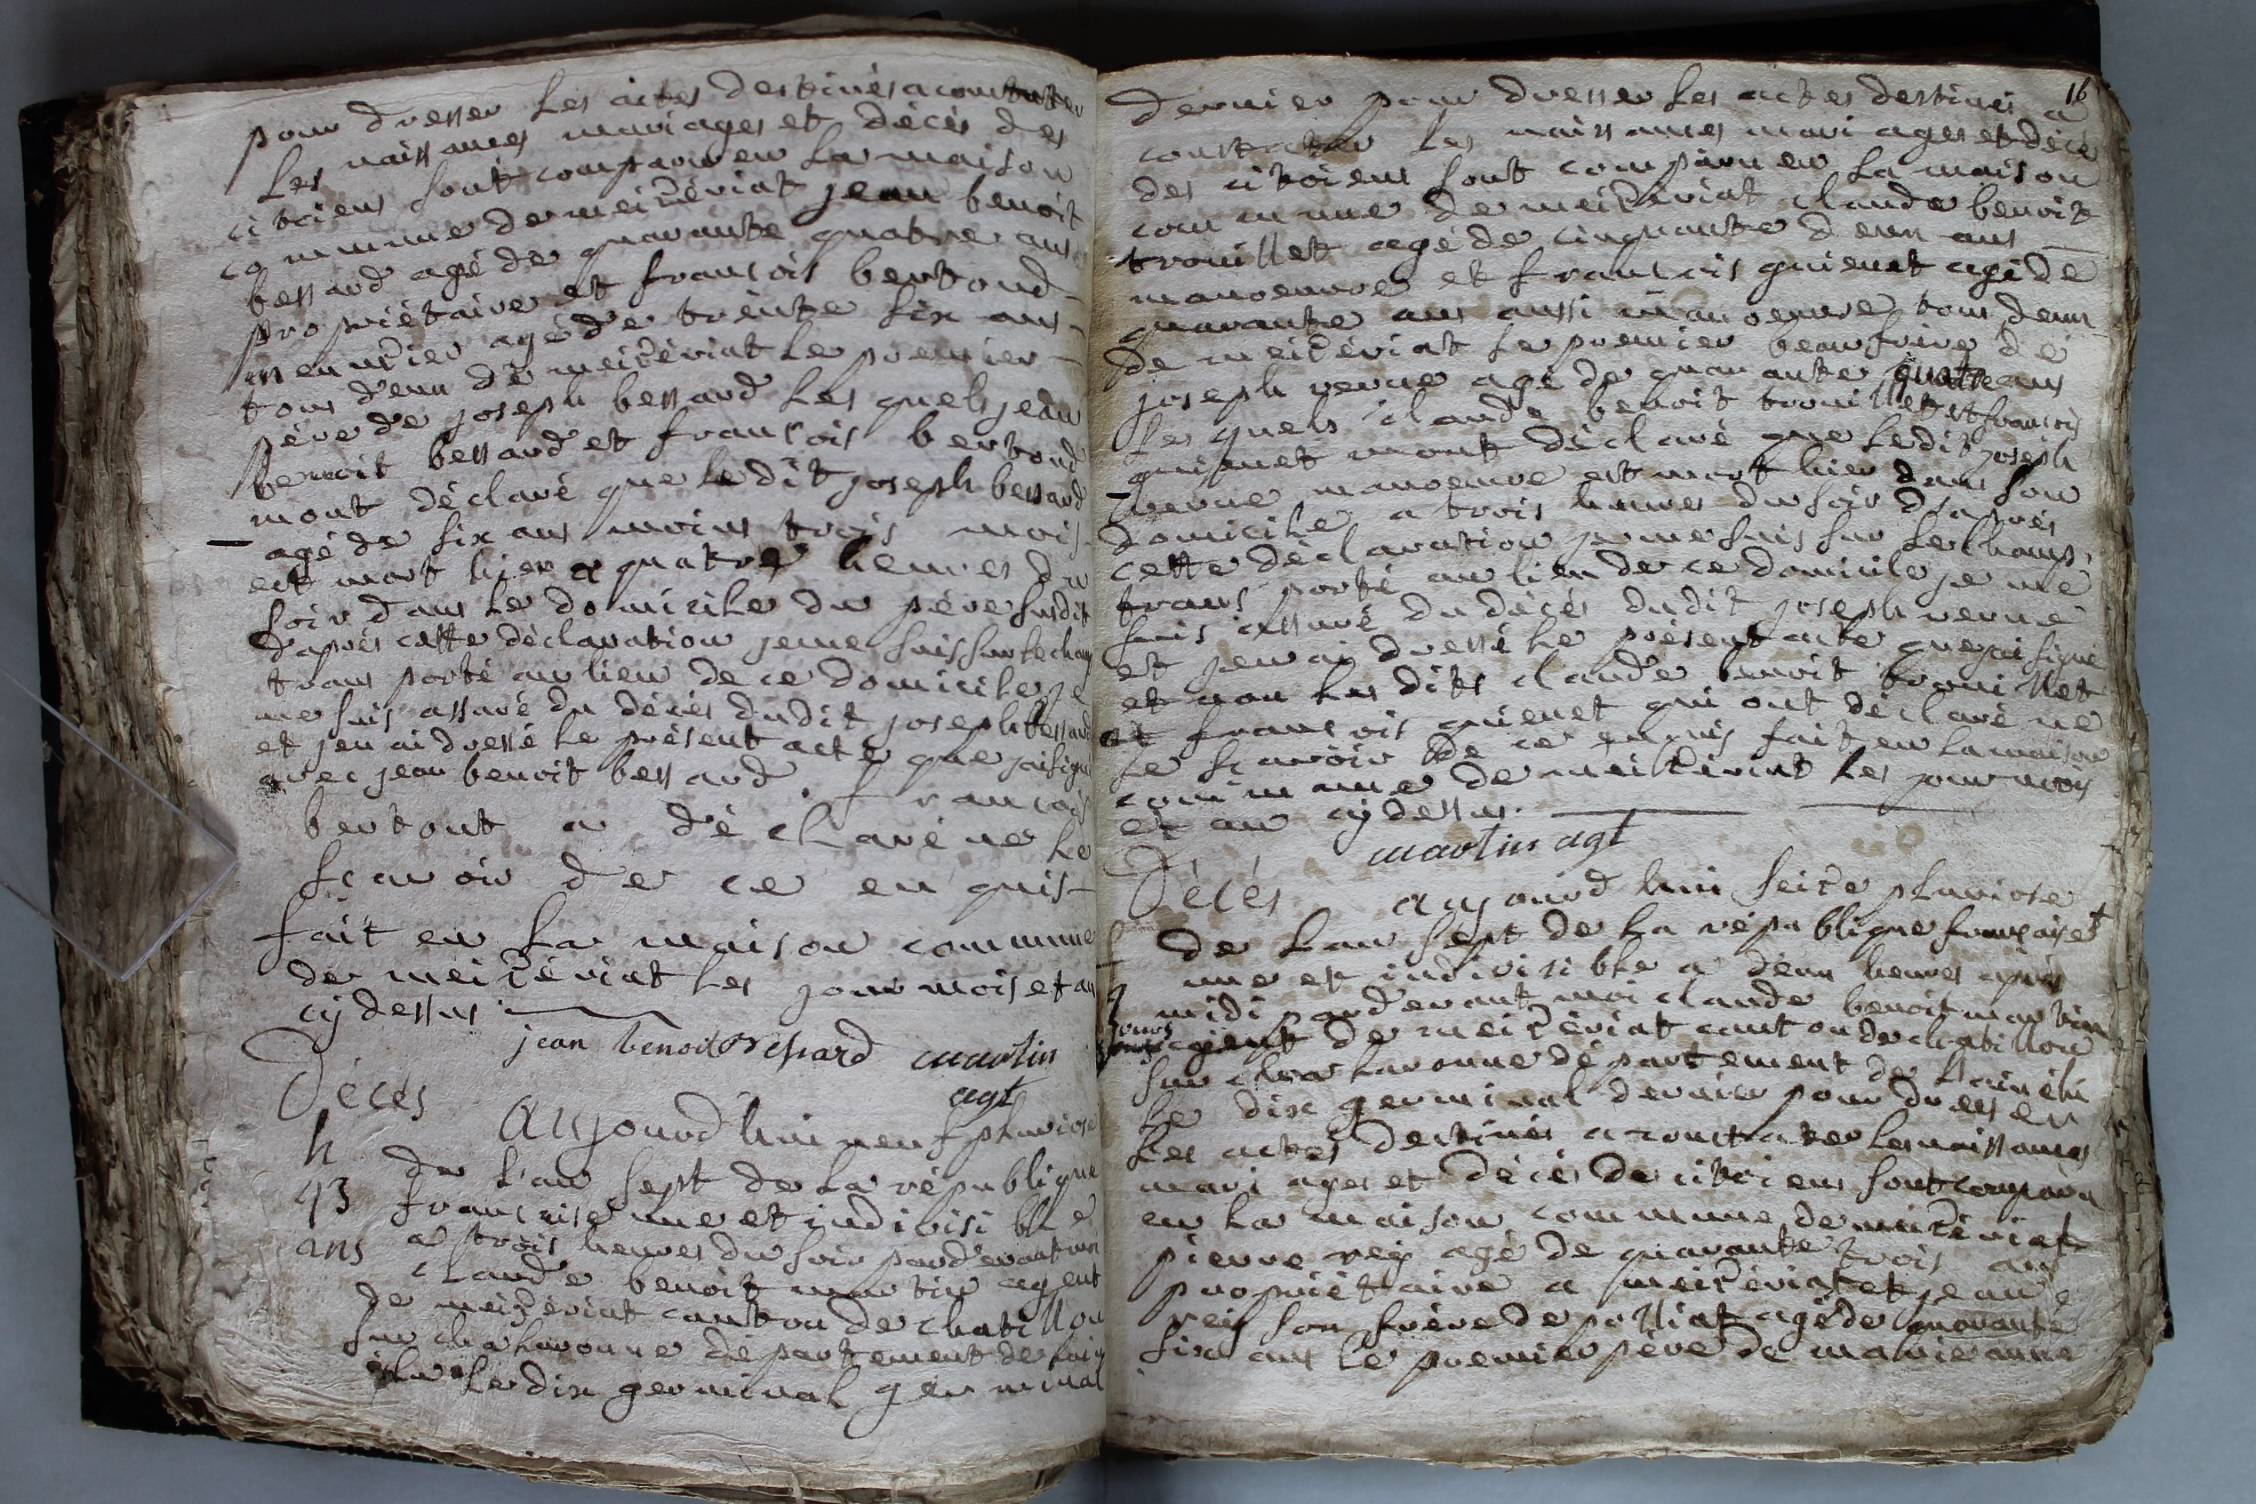 pour dresser les actes destinés a constater
les naissances mariages et décès des
citoiens sont comparu en la maison
commune de meizériat jean benoit
bessard agé de quarante quatre ans
propriétaire et francois bertoud
menuzier agé de trente six ans
tous deux de meizériat le premier
père de joseph bessard les quels jean
benoit bessard et francois bertoud
mont déclaré que ledit joseph bessard
agé de six ans moins trois mois
est mort hier a quatre heures du
soir dans le domicile du père susdit
d'après cette déclaration je me suis sur le champ
trans porté au lieu de ce domicile je
me suis assuré du décès dudit joseph bessard
et jen ai dressé le présent acte que jai signé
avec jean benoit bessard. francois
bertout a déclaré ne le
scavoir de ce enquis
fait en la maison commune
de meizériat les jour mois et an
cy dessus
jean benoit martin
agt
Décès aujourd'hui neuf pluviose
h de l'an sept de la république
43 francaise une et indivisible
ans a trois heures du soir pardevant moi
claude benoit martin agent
de meizériat canton de chatillon
sur chalaronne département de lain
élu le dix germinal germinal
16
dernier pour dresser les actes destinés a
constater les naissances mariages et décès
des citoiens sont comparu en la maison
commune de meizériat claude benoit
trouillet agé de cinquante deux ans
manoeuvre et francois guienet agé de
quarante ans aussi manoeuvre tous deux
de meizériat le premier beaufrère de
joseph verne agé de quarante quatre ans
les quels claude benoit trouillet et francois
guienet mont déclaré que ledit joseph
verne manoeuvre est mort hier dans son
domicile a trois heures du soir d'après
cette déclaration je me suis sur le champ
trans porté au lieu de ce domicile je me
suis assuré du décès dudit joseph verne
et jen ai dressé le présent acte que jai signé
et non les dits claude benoit trouillet
et francois guienet qui ont déclaré ne
le scavoir de ce enquis fait en la maison
commune de meizériat les jour mois
et an cy dessus.
martin agt
Décès aujourd hui seize pluviose
de lan sept de la république francaise
une et indivisible a deux heures après
midi pardevant moi claude benoit martin
agent de meizériat canton de chatillon
sur chalaronne département de lain élu
le dix germinal dernier pour dresser
les actes destinés a constater les naissances
mariages et décès de citoiens sont comparu
en la maison commune de meizériat
pierre rey agé de quarante trois ans
propriétaire a meizériat et jean
rey son frère de polliat agé de quarante
six ans le premier père de marie anne